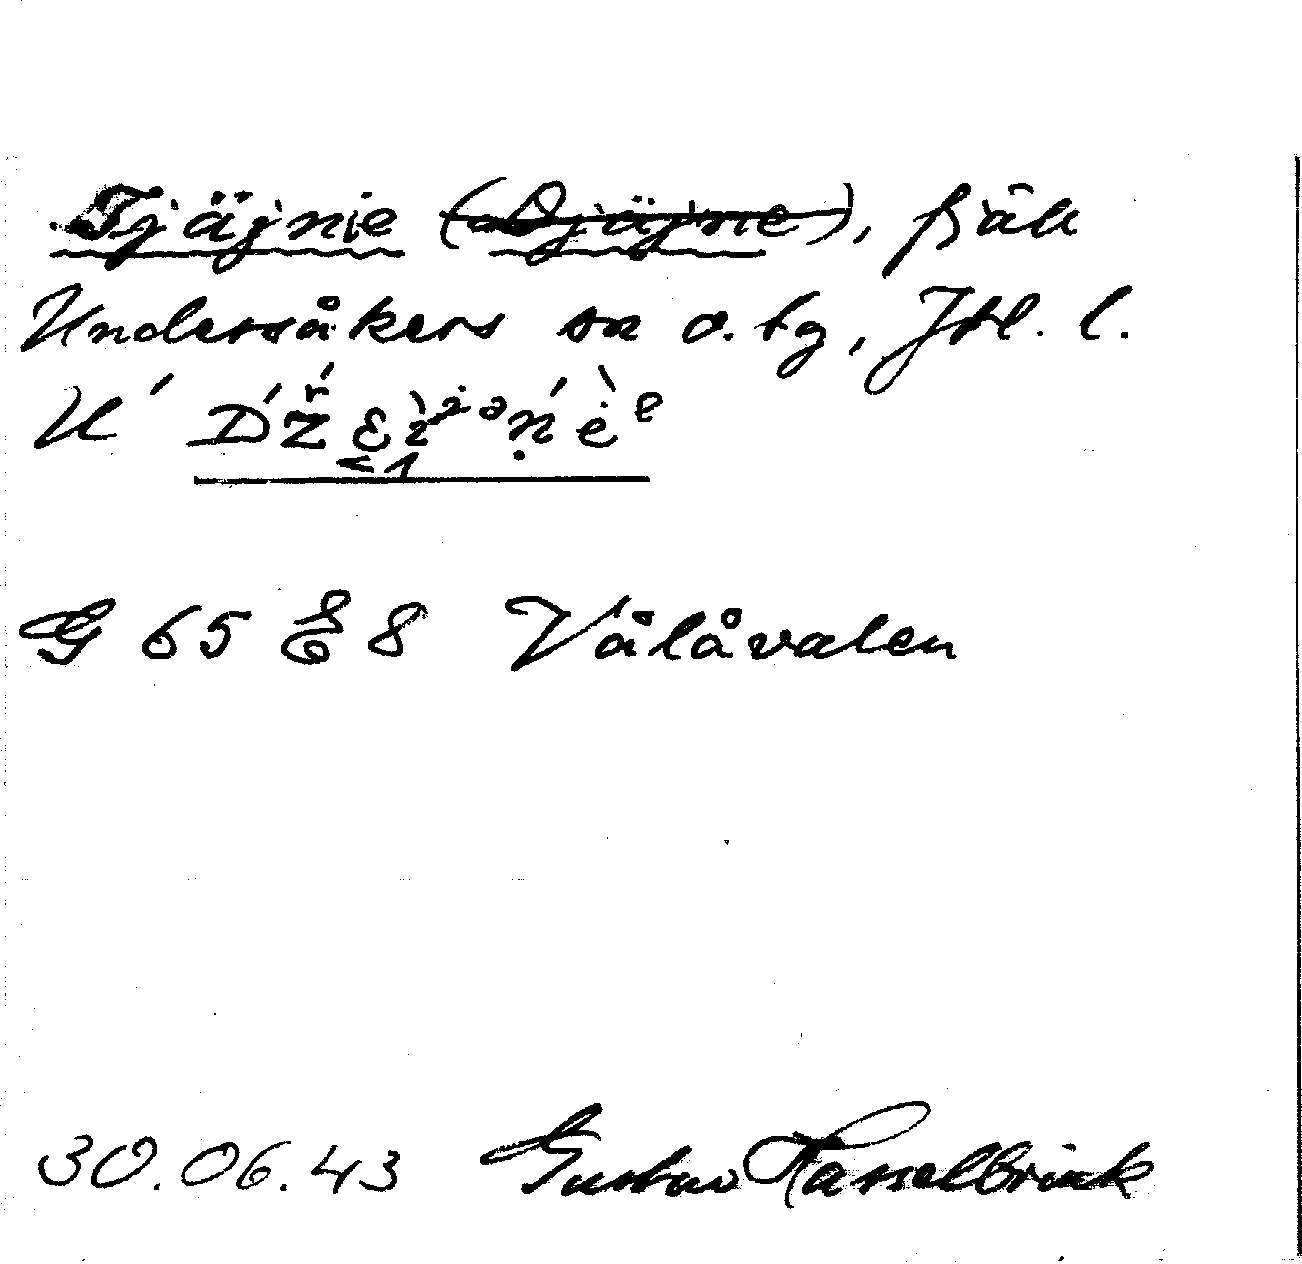 Tjäjnie (Djäjne), fjäll
Undersåkers sn o. tg, Jtl. l.
G 65 E 8 Vålåvalen
30.06.43 Gustav Hasselbrink